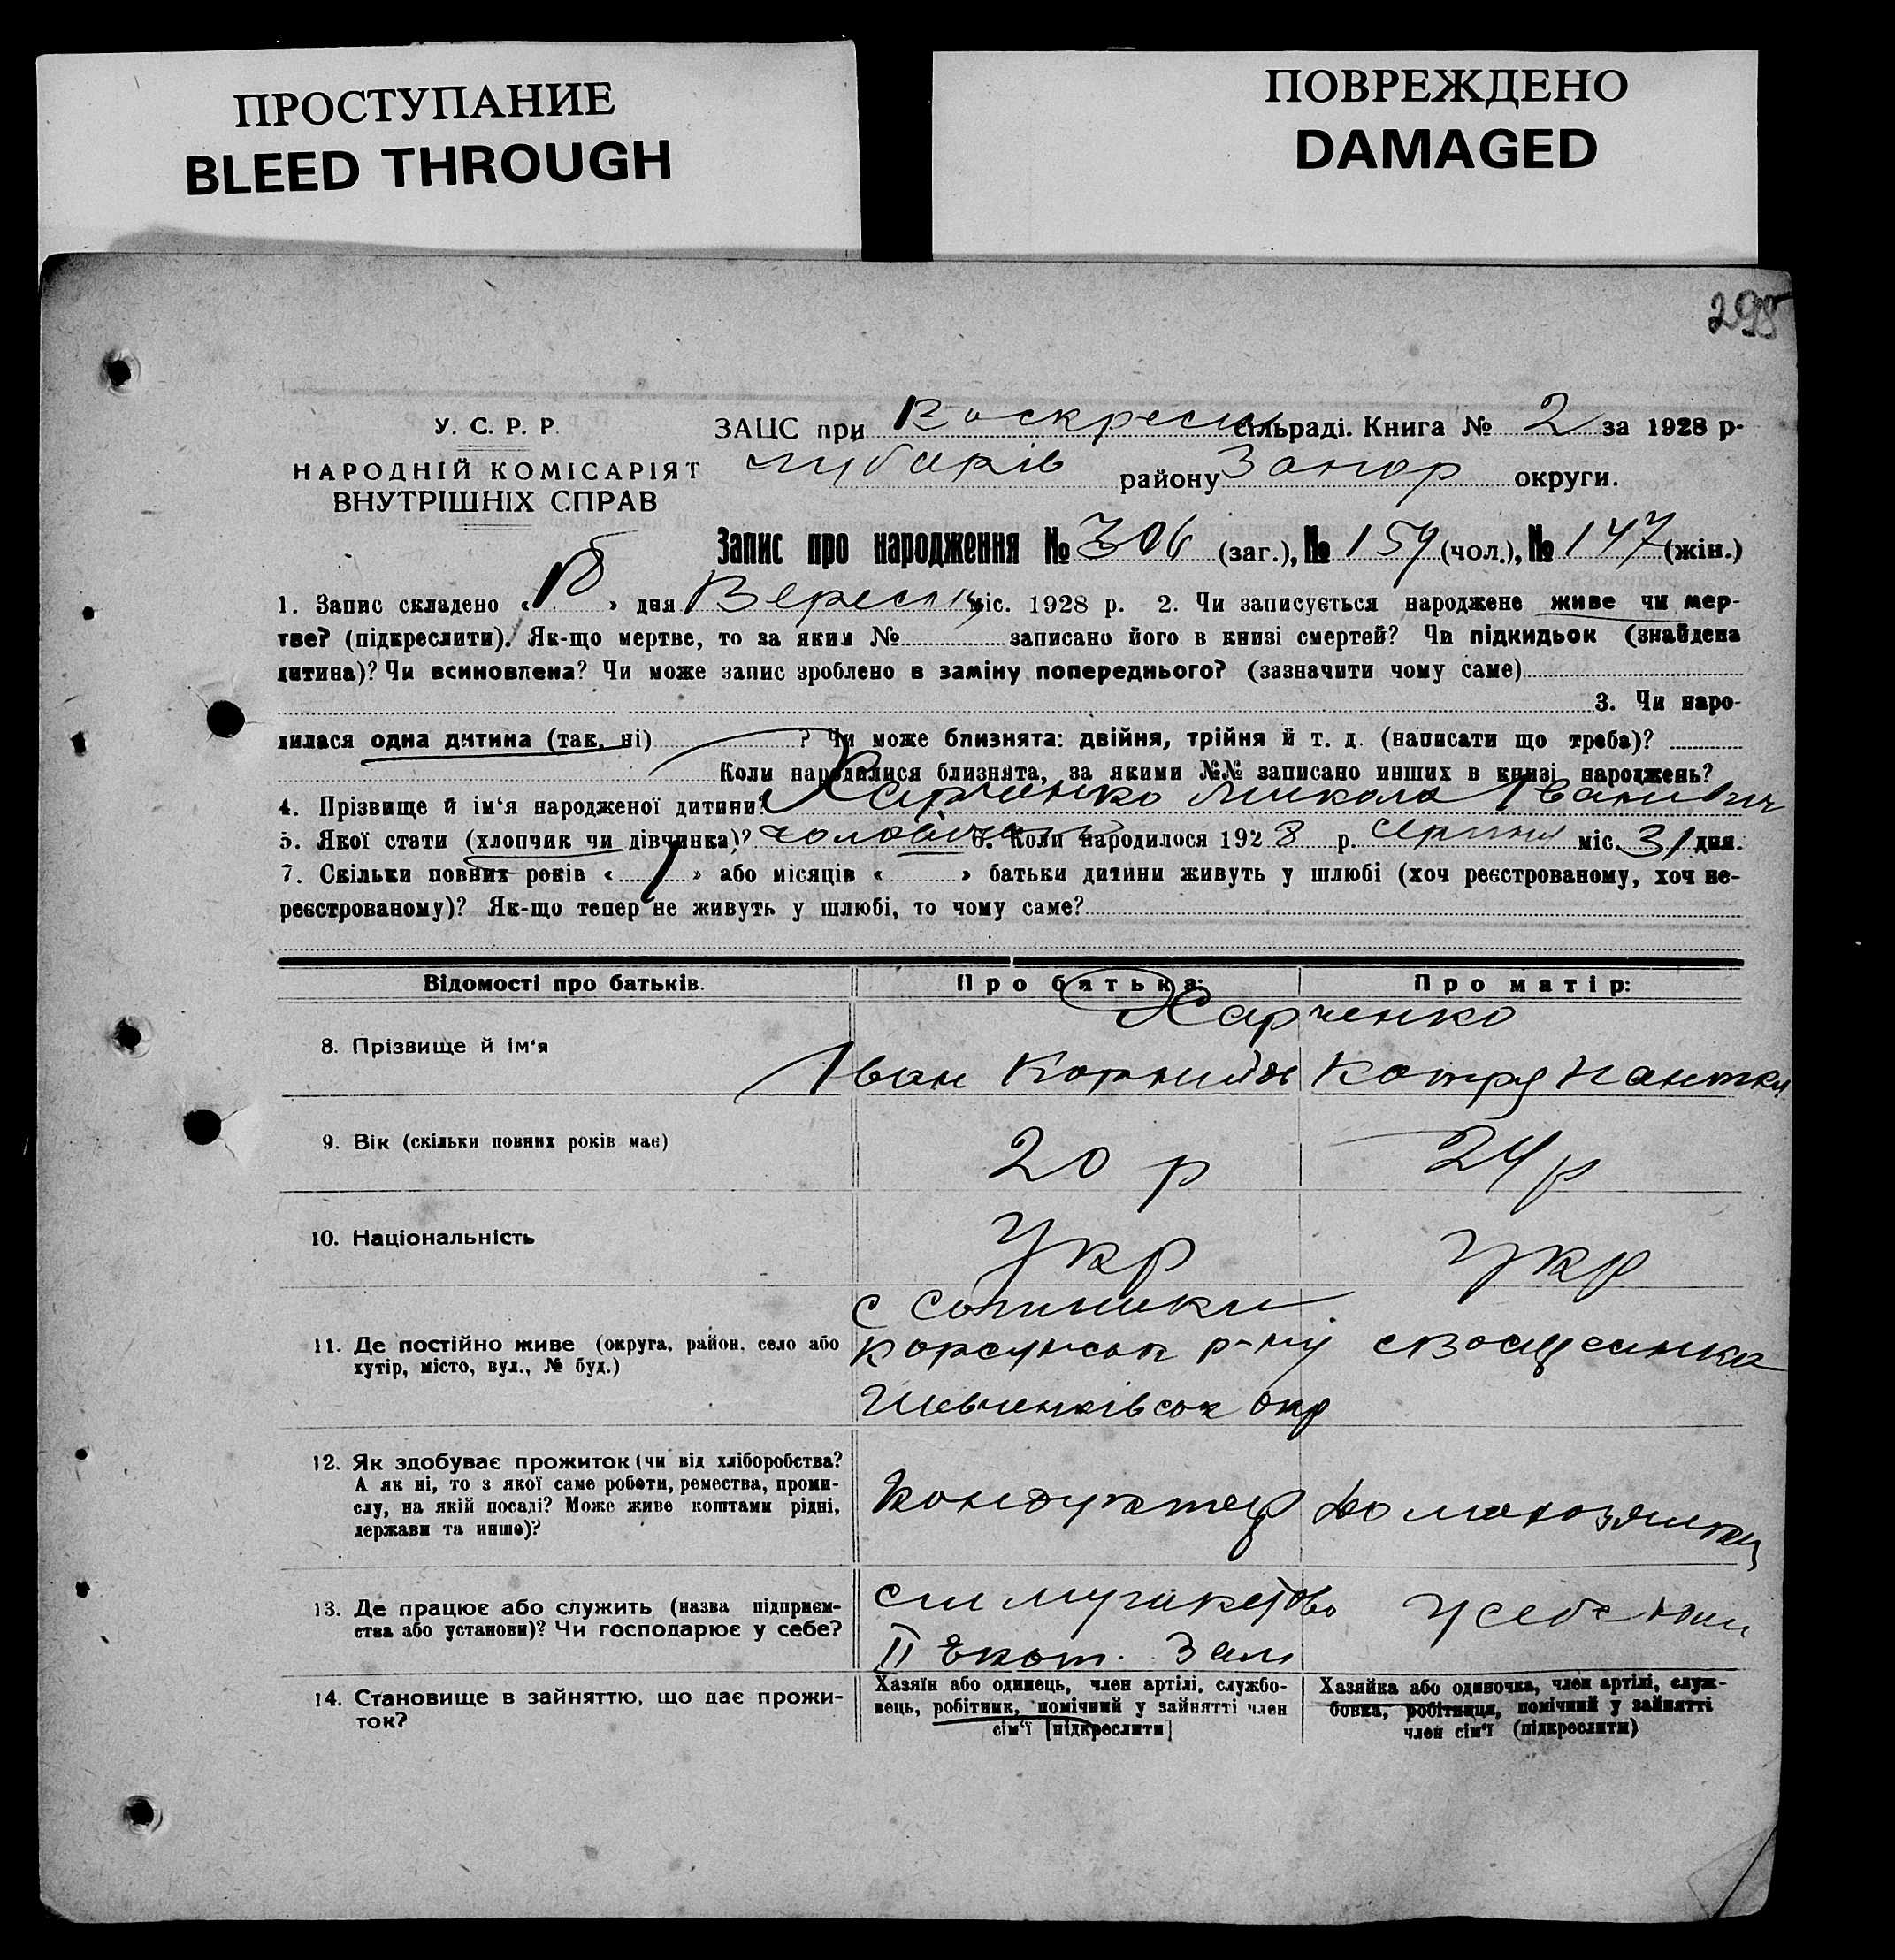 ПРОСТУПАНИЕ
BLEED THROUGH
ПОВРЕЖДЕНО
DAMAGED
298
У. С. Р. Р.
НАРОДНІЙ КОМІСАРІЯТ
ВНУТРІШНІХ СПРАВ
ЗАЦС при Воскресен сільраді. Книга № 2 за 1928 р-
Чубарів району Запор округи.
Запис про народження № 306 (заг.), № 159 (чол.), № 147 (жін.)
1. Запис складено « » дня Вересня міс. 1928 р. 2. Чи записується народжене живе чи мер-
тве? (підкреслити). Як-що мертве, то за яким № записано його в книзі смертей? Чи підкидьок (знайдена
дитина)? Чи всиновлена? Чи може запис зроблено в заміну попереднього? (зазначити чому саме)
3. Чи наро-
дилася одна дитина (так, ні) ? Чи може близнята: двійня, трійня й т. д. (написати що треба)?
Коли народилися близнята, за якими №№ записано инших в книзі народжень?
4. Прізвище й ім'я народженої дитини? Харченко Микола Іванович
5. Якої стати (хлопчик чи дівчинка)? 6. Коли народилося 1928 р. Серпня міс. 31 дня.
7. Скільки повних років « 1 » або місяців « » батьки дитини живуть у шлюбі (хоч реєстрованому, хоч не-
реєстрованому)? Як-що тепер не живуть у шлюбі, то чому саме?
Відомості про батьків. Про батька: Про матір:
Харченко
8. Прізвище й ім'я Іван Корнийов Катря
9. Вік (скільки повних років має) 20 р 24 р
10. Національність Укр Укр
с Сотники
11. Де постійно живе (округа, район, село або
хутір, місто, вул., № буд.) Корсунськ р-ну
Шевченківськ окр
12. Як здобуває прожиток (чи від хліборобства?
А як ні, то з якої саме роботи, ремества, проми-
слу, на якій посаді? Може живе коштами рідні,
держави та инше)? Кондуктор Домохозяйка
13. Де працює або служить (назва підприєм-
ства або установи)? Чи господарює у себе?
II Екат. Зал у себе
14. Становище в зайняттю, що дає прожи-
ток?
Хазяїн або одинець, член артілі, службо-
вець, робітник, помічний у зайнятті член
сім'ї [підкреслити]
Хазяйка або одиночка, член артілі, служ-
бовка, робітниця, помічний у зайнятті
член сім'ї (підкреслити)